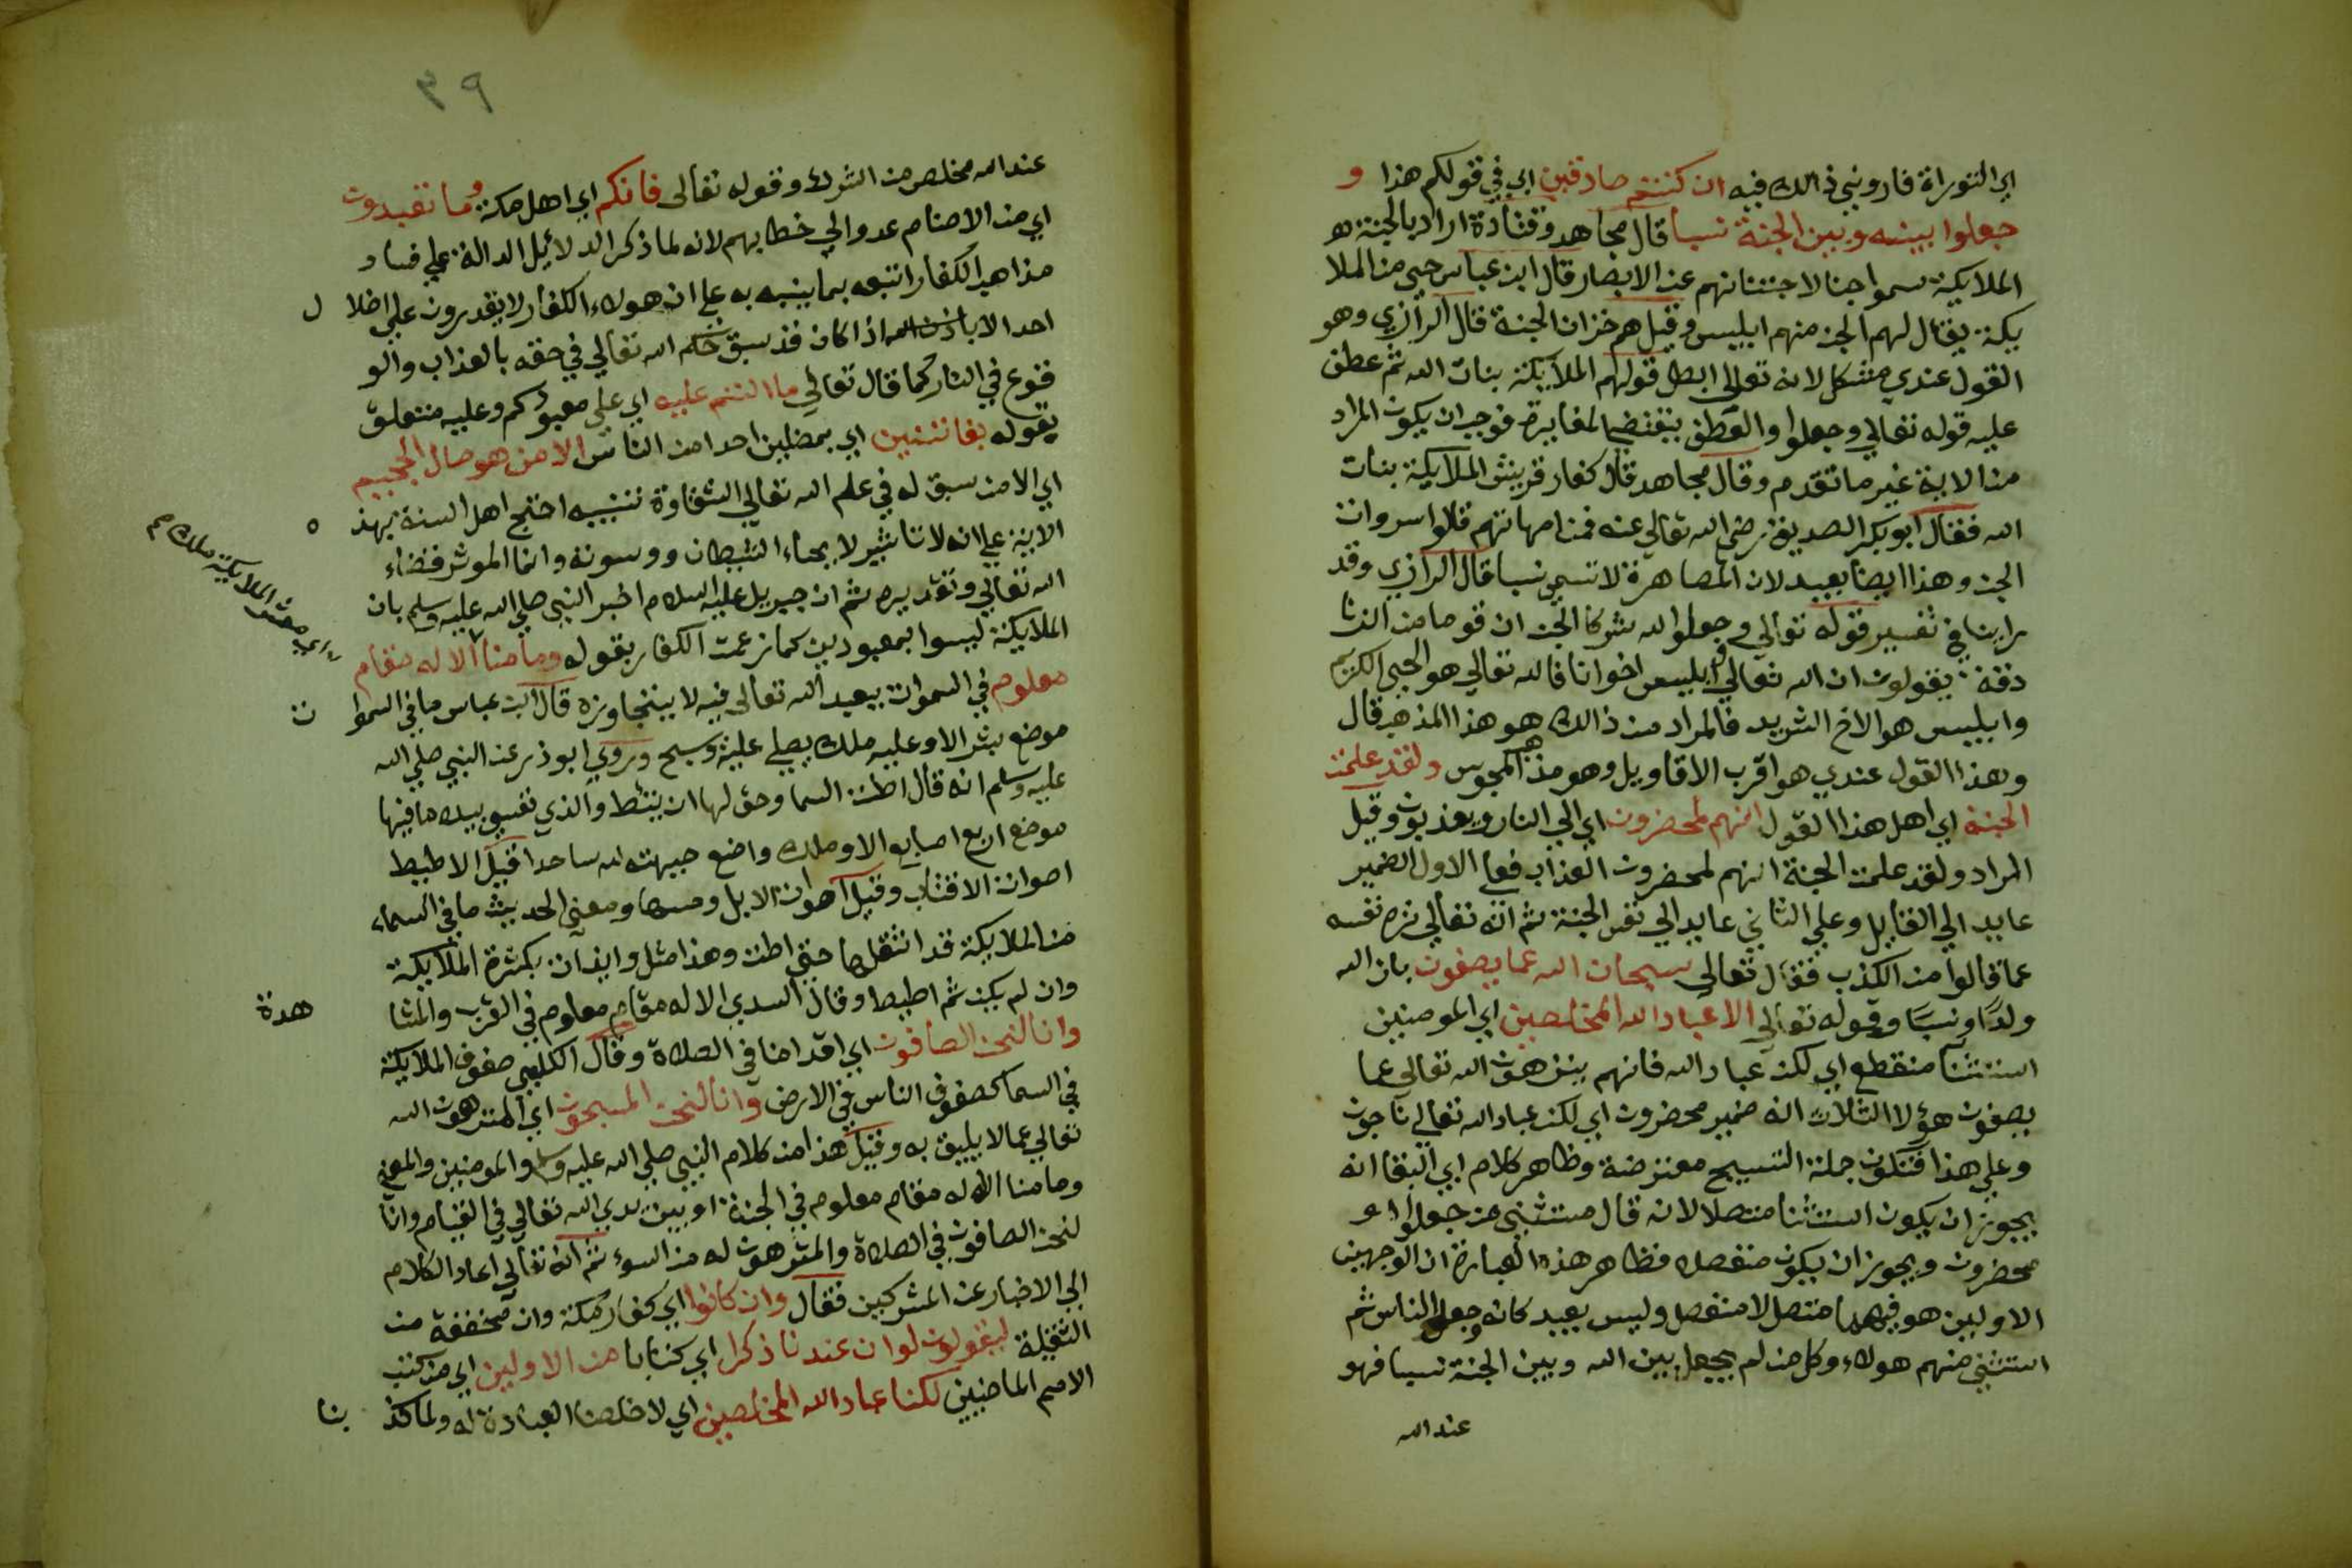 اي التوراة فاروني ذالك فيه ان كنتم صادقين اي في قولكم هذا و
جعلوا بينه وبين الجنة نسبا قال مجاهد وقتادة اراد بالجنة هو
الملايكة سموا جنا لاجتنانهم عن الابصار قال ابن عباس حي من الملا
يكة يقال لهم الجن منهم ابليس وقيل هم خزان الجنة قال الرازي وهو
القول عندي مشكل لانه تعالى ابطل قولهم الملايكة بنات الله ثم عطف
عليه قوله تعالي وجعلوا والعطف يقتضي المغايرة فوجب ان يكون المراد
من الاية غير ما تقدم وقال مجاهد قال كفار قريش الملايكة بنات
الله فقال ابو بكر الصديق رضي الله تعالي عنه فمن امهاتهم قالوا سروات
الجن وهذا ايضا بعيد لان المصاهرة لا تسمي نسبا قال الرازي وقد
راينا في تفسير قوله تعالي وجعلوا لله شركا الجن ان قوما من الزنا
دقة يقولون ان الله تعالي وابليس اخوانا فالله تعالي هو الحي الكريم
وابليس هو الاخ الشريد فالمراد من ذالك هو هذا المذهب قال
وهذا القول عندي هو اقرب الاقاويل وهو مذهب المجوس ولقد علمت
الجنة اي اهل هذا القول انهم لمحضرون اي الي النار ويعذبون وقيل
المراد ولقد علمت الجنة انهم لمحضرون العذاب فعلي الاول الضمير
عايد الي القايل وعلي الثاني عايد الي نفس الجنة ثم انه تعالي نزه نفسه
عما قالوا من الكذب فقال تعالي سبحان الله عما يصفون بان لله
ولدا ونسبا وقوله تعالي الا عباد الله المخلصين اي المومنين
استثنا منقطع اي لكن عباد الله فانهم ينزهون الله تعالي عما
يصفون هؤلا الثلاث انه ضمير محضرون اي لكن عباد الله تعالي ناجون
وعلي هذا فتكون جملة التسبيح معترضة وظاهر كلام ابي البقا انه
يجوز ان يكون استثنا متصلا لانه قال مستثني من جعلوا او
محضرون ويجوز ان يكون منفصلا فظاهر هذه العبارة ان الوجهين
الاولين هو فيهما متصل لا منفصل وليس بعيد كانه وجعل الناس ثم
استثني منهم هولاء وكل من لم يجعل بين الله وبين الجنة نسبا فهو
عند الله
٣٩
عند الله مخلص من الشرك وقوله تعالى فانكم اي اهل مكة وما تعبدون
اي من الاصنام عدوا الي خطابهم لانه لما ذكر الدلائيل الدالة علي فساد
مذاهب الكفار اتبعه بما ينبه به علي ان هولاء الكفار لا يقدرون علي اضلا ل
احد الا باذن الله اذا كان قد سبق حكم الله تعالي في حقه بالعذاب والو
قوع في النار كما قال تعالي ما انتم عليه اي علي معبودكم وعليه متعلق
بقوله بفاتنين اي بمضلين احدا من الناس الا من هو صال الجحيم
اي الا من سبق له في علم الله تعالي الشقاوة تنبيه احتج اهل السنة بهذ ه
الاية علي انه لا تاثير لايحاء الشيطان ووسوسته وانما الموثر قضاء
الله تعالي وتقديره ثم ان جبريل عليه السلام اخبر النبي صلي الله عليه وسلم بان
الملايكة ليسوا بمعبودين كما زعمت الكفار بقوله وما منا الا له مقام
اي معشر الملايكة ملك
معلوم في السموات يعبد الله تعالى فيه لا يتجاوزه قال ابن عباس ما في السموا ت
موضع شبر الا وعليه ملك يصلي عليه وسبح وروي ابو ذر عن النبي صلي الله
عليه وسلم انه قال اطت السما وحق لها ان تئط والذي نفسي بيده ما فيها
موضع اربع اصابع الا وملك واضع جبهته لله ساجدا قيل الاطيط
اصوات الاقتاب وقيل اصوات الابل وحسها ومعني الحديث ما في السماء
من الملايكة قد اثقلها حتي اطت وهذا مثل وايذان بكثرة الملايكة
وان لم يكن ثم اطيط وقال السدي الا له مقام معلوم في القرب والمشا هدة
وانا لنحن الصافون اي اقدامنا في الصلاة وقال الكلبي صفوف الملايكة
في السما كصفوف الناس في الارض وانا لنحن المسبحون اي المنزهون الله
تعالي عما لا يليق به وقيل هذا من كلام النبي صلي الله عليه وسلم والمومنين والمعني
وما منا الا له مقام معلوم في الجنة او بين يدي الله تعالي في القيام وانا
لنحن الصافون في الصلاة والمنزهون له من السوء ثم انه تعالي اعاد الكلام
الي الاخبار عن المشركين فقال وان كانوا اي كفار مكة وان مخففة من
الثقيلة ليقولون لو ان عندنا ذكرا اي كتابا من الاولين اي من كتب
الامم الماضيين لكنا عباد الله المخلصين اي لاخلصنا العبادة له ولما كذ بنا